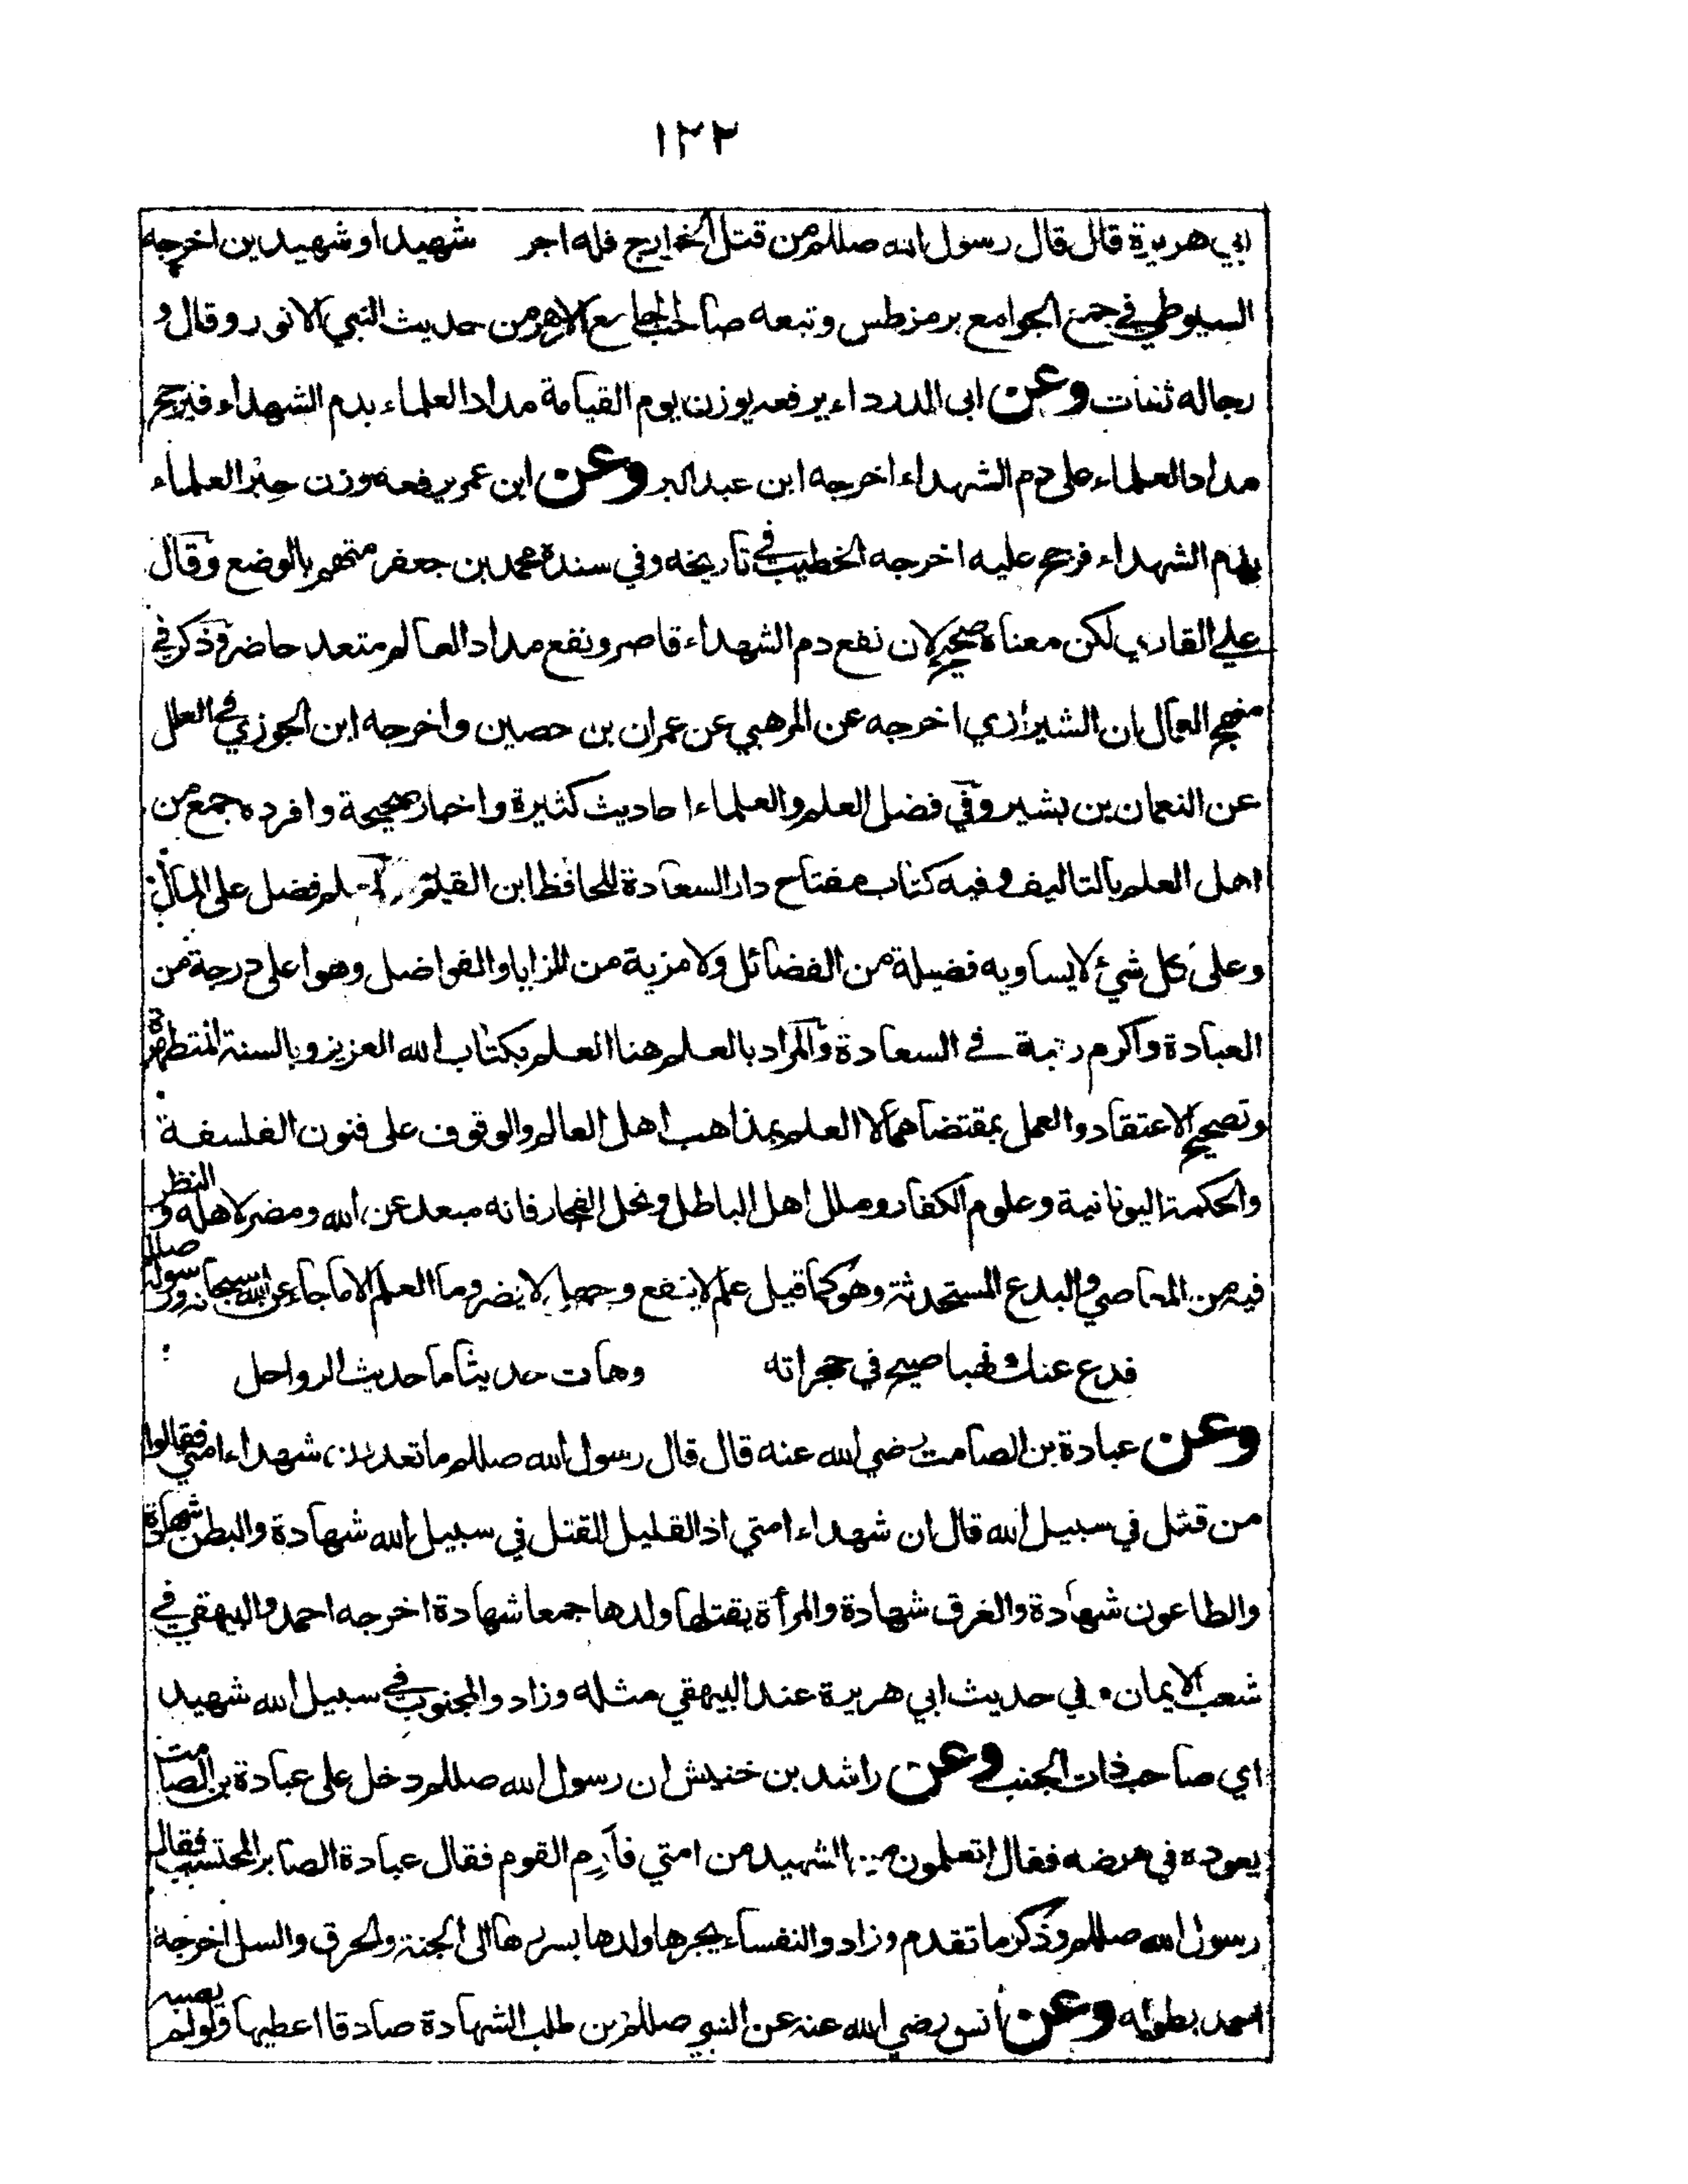 ١٢٢
ابي هريرة قال قال رسول الله صللم من قتل الخوارج فله اجر شهيد او شهيدين اخرجه
السيوطي في جمع الجوامع برمز طس وتبعه صاحب الجامع الازهر من حديث النبي الانور وقال و
رجاله ثقات وعن ابي الدرداء يرفعه يوزن يوم القيامة مداد العلماء بدم الشهداء فيرجح
مداد العلماء على دم الشهداء اخرجه ابن عبد البر وعن ابن عمر يرفعه وزن حبر العلماء
بدم الشهداء فرجح عليه اخرجه الخطيب في تاريخه وفي سنده محمد بن جعفر متهم بالوضع وقال
علي القاري لكن معناه صحيح لان نفع دم الشهداء قاصر ونفع مداد العالم متعد حاضر وذكر في
منهج العمال ان الشيرازي اخرجه عن المرهبي عن عمران بن حصين واخرجه ابن الجوزي في العلل
عن النعمان بن بشير وفي فضل العلم والعلماء احاديث كثيرة واخبار صحيحة وافرده جمع من
اهل العلم بالتاليف وفيه كتاب مفتاح دار السعادة للحافظ ابن القيم فضل على المال
وعلى كل شيء لايساويه فضيلة من الفضائل ولا مزية من المزايا والفواضل وهو اعلى درجة من
العبادة واكرم رتبة في السعادة والمراد بالعلم هنا العلم بكتاب الله العزيز وبالسنة المتطهرة
وتصحيح الاعتقاد والعمل بمقتضاهما لا العلم بمذاهب اهل العالم والوقوف على فنون الفلسفة
والحكمة اليونانية وعلوم الكفار وملل اهل الباطل ونحل الفجار فانه مبعد عن الله ومضر لاهله والنظر
فيه من المعاصي والبدع المستحدثة وهو كما قيل علم لا ينفع وجهل لا يضر وما العلم الا ما جاء عن الله سبحانه ورسوله صللم
فدع عنك نهبا صيح في حجراته وهات حديثا ما حديث الرواحل
وعن عبادة بن الصامت رضي الله عنه قال قال رسول الله صللم ما تعدون شهداء امتي فقالوا
من قتل في سبيل الله قال ان شهداء امتي اذا لقليل القتل في سبيل الله شهادة والبطن شهادة
والطاعون شهادة والغرق شهادة والمرأة يقتلها ولدها جمعا شهادة اخرجه احمد والبيهقي في
شعب الايمان في حديث ابي هريرة عند البيهقي مثله وزاد والمجنوب في سبيل الله شهيد
اي صاحب ذات الجنب وعن راشد بن خنيش ان رسول الله صللم دخل على عبادة بن الصامت
يعوده في مرضه فقال اتعلمون من الشهيد من امتي فأرم القوم فقال عبادة الصابر المحتسب فقال
رسول الله صللم وذكر ما تقدم وزاد والنفساء يجرها ولدها بسررها الى الجنة والحرق والسل اخرجه
احمد بطوله وعن أنس رضي الله عنه عن النبي صللم من طلب الشهادة صادقا اعطيها ولو لم تصبه